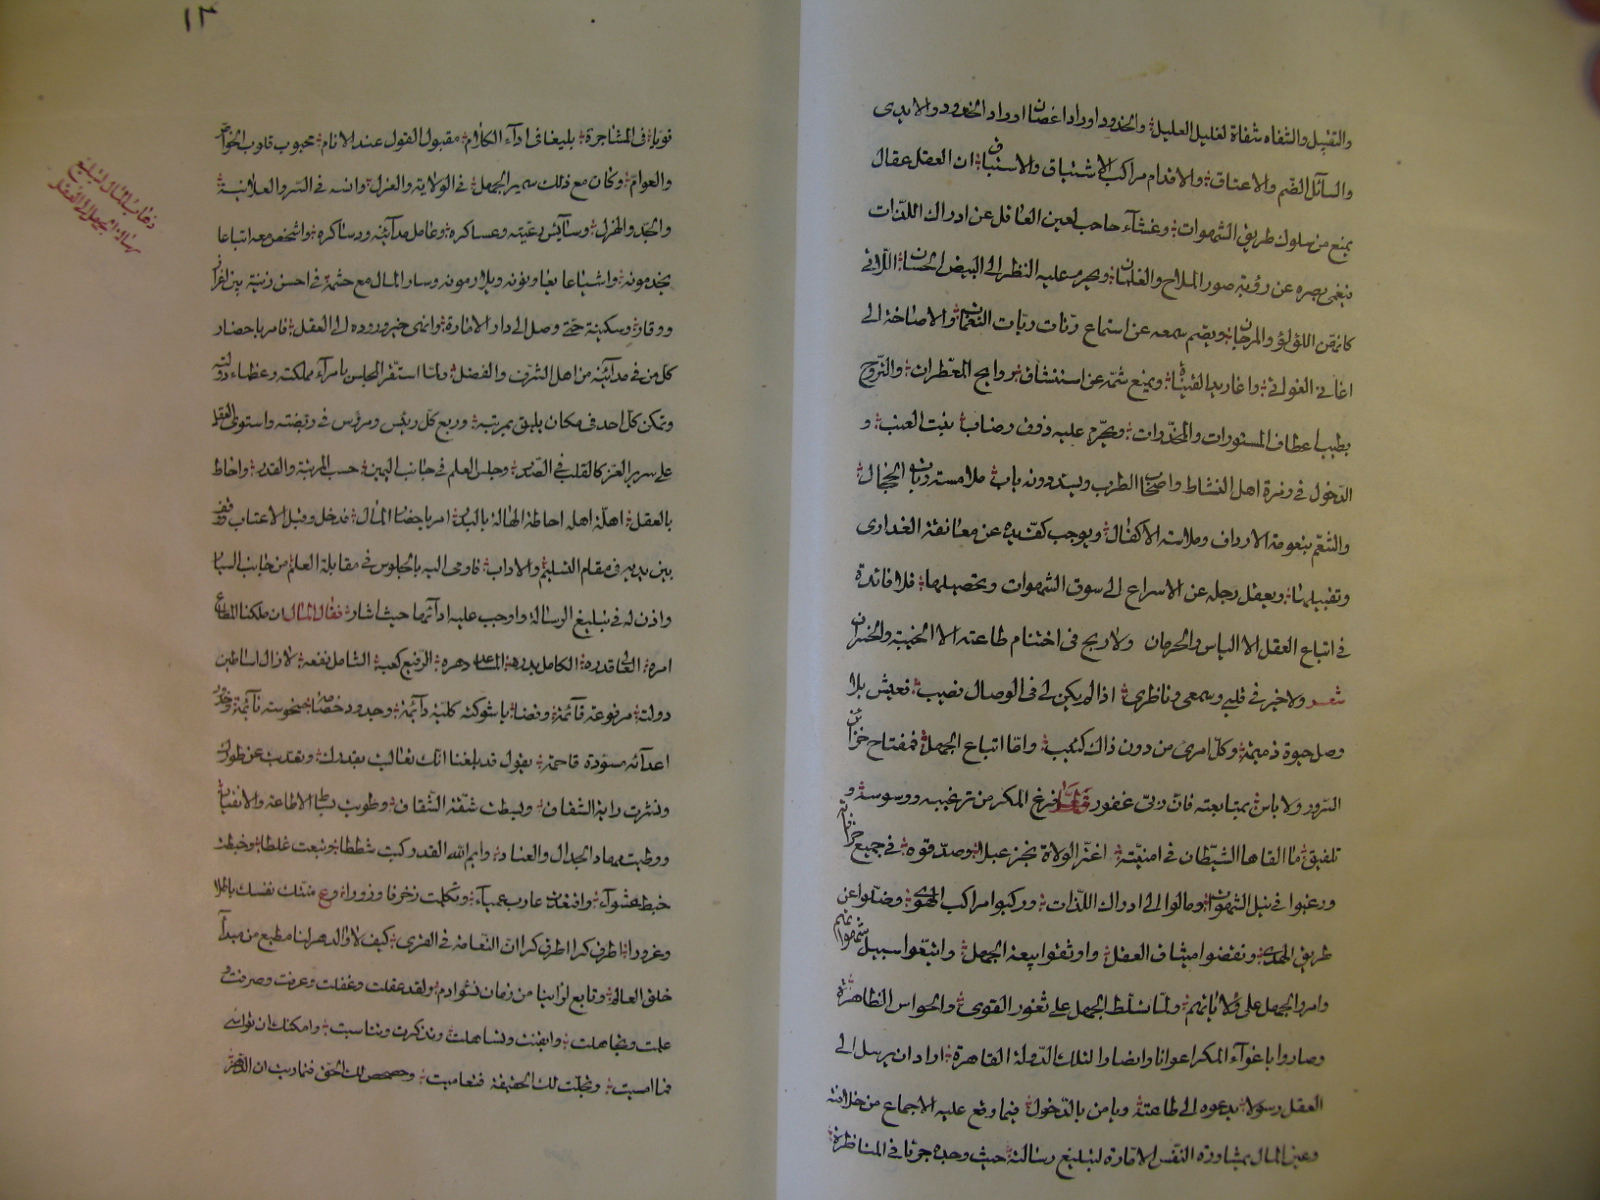 والتقبيل والشفاه شفاة لغليل العليل والخدود اوراد اغصان اوراد الخدود والايدى
والسآئل الضم والاعتاق والاقدام مراكب الاشتياق والاستباق ان العقل عقال
يمنع من سلوك طريق الشهوات وغشآء حاجب لعين الغافل عن ادراك اللذات
بصره عن رؤية صور الملاح والغلمان ويحرم عليه النظر الى البيض الحسان اللاتى
كانهن اللؤلؤ والمرجان ويصم سمعه عن استماع رنات ربات النغمات والاصاخة الى
اغانى الغوانى واغاريد القينات ويمنع شمه عن استنشاق روايح المعطرات والتروح
بطيب اعطاف المستورات والمخدرات ويحرم عليه ذوق رضاب بنت العنب و
الدخول فى زمرة اهل النشاط واصحاب الطرب ويسد دونه باب ملامسة ربات الحجال
والتنعم بنعومة الارداف وملاسة الاكفال ويوجب كف يده عن معانقة العذارى
وتقبيلها ويعقل رجله عن الاسراع الى سوق الشهوات وتحصيلها فلا فائدة
فى اتباع العقل الا الياس والحرمان ولا ربح فى اغتنام طاعته الا الخيبة والخسران
شعر ولا خير فى قلبى وسمعى وناظرى اذا لم يكن لى فى الوصال نصيب فعيش بلا
وصل حيوة ذميمة وكل امرئ من دون ذاك كئيب واما اتباع الجهل فمفتاح خزائن
السرور ولا باس بمتابعته فان ربى غفور فلما فرغ المكر من ترغيبه ووسوسته و
تلفيق ما القاها الشيطان فى امنيته اغتر الولاة وصدقوه فى جميع خرافاته
ورغبوا فى نيل الشهوات ومالوا الى ادراك اللذات وركبوا مراكب الهوى وضلوا عن
طريق الهدى ونقضوا ميثاق العقل واوثقوا بيعة الجهل واتبعوا سبيل شهواتهم
وامروا الجهل على ولاياتهم ولما تسلط الجهل على ثغور القوى والحواس الظاهرة
وصاروا باغوآء المكر اعوانا وانصارا لتلك الدولة القاهرة اراد ان يرسل الى
العقل رسولا يدعوه الى طاعته ويامن بالدخول فيما وقع عليه الاجماع من خلافته
وعين المال بمشاورة النفس الامارة لتبليغ رسالته حيث وجده جريا فى المناظرة
١٣
قويا فى المشاجرة بليغا فى ادآء الكلام مقبول القول عند الانام محبوب قلوب الخواص
والعوام وكان مع ذلك سمير الجهل فى الولاية والعزل وانسه فى السر والعلانية
والجد والهزل وسآيس رعيته وعساكره وعامل مدآئنه ودساكره واشخص معه اتباعا
يخدمونه واشياعا يعاونونه ويلازمونه وسار المال مع حشمة فى احسن زينة بين اقرانه
ووقار وسكينة حتى وصل الى دار الامارة وانهى خبر وروده الى العقل فامر باحضار
كل من فى مدآئنه من اهل الشرف والفضل ولما استقر المجلس بامرآء مملكته وعظماء دولته
وتمكن كل احد فى مكان يليق بمرتبته وربع كل رئيس ومرؤس فى واستوى العقل
على سرير العز كالقلب فى الصدر وجلس العلم فى جانب اليمين حسب المرتبة والقدر واحاط
بالعقل اهلة اهله احاطة الهالة بالبدر امر باحضار المال فدخل وقبل الاعتاب ووقف
بين يديه فى مقام التسليم والاداب فاوحى اليه بالجلوس فى مقابلة العلم من جانب اليسار
واذن له فى تبليغ الرسالة واوجب عليه ادآئها حيث اشار فقال المال ان ملكنا المطاع
امره العالى قدره الكامل بدره دهره الرفيع كعبه الشامل نفعه لازال اساطين
دولته مرفوعة قآئمة وقضايا شوكته كلية دآئمة وحدود خصآئه منحوسة نآئمة وخدود
اعدآئه مسودة قاحمة يقول قد بلغنا انك تغاليت بقدرك وتعديت عن طورك
ونشرت راية الشقاق وبسطت شقة الشقاق وطويت بساط الاطاعة والانقياد
ووطيت مهاد الجدال والعناد وايم الله لقد ركبت شططا وتبعت غلطا وخبطت
خبط عشوآء واقتعدت غارب عميآء وتكلمت زخرفا وزورا ومنتك نفسك باطلا
وغرورا اطرق كرا اطرق كرا ان النعامة فى القرى كيف لا والدهر لنا مطيع من مبدأ
خلق العالم وتابع لراينا من زمان نشو ادم ولقد عقلت وغفلت وعرفت وصرفت و
علمت وتجاهلت وايقنت وتساهلت وتذكرت وتناسيت وامكنك ان تواسى
فما اسيت وتجلت لك الحقيقة فتعاميت وحصحص لك الحق فتماريت ان الدهر
ذهاب المال لتبليغ
رسالة الجهل الى العقل